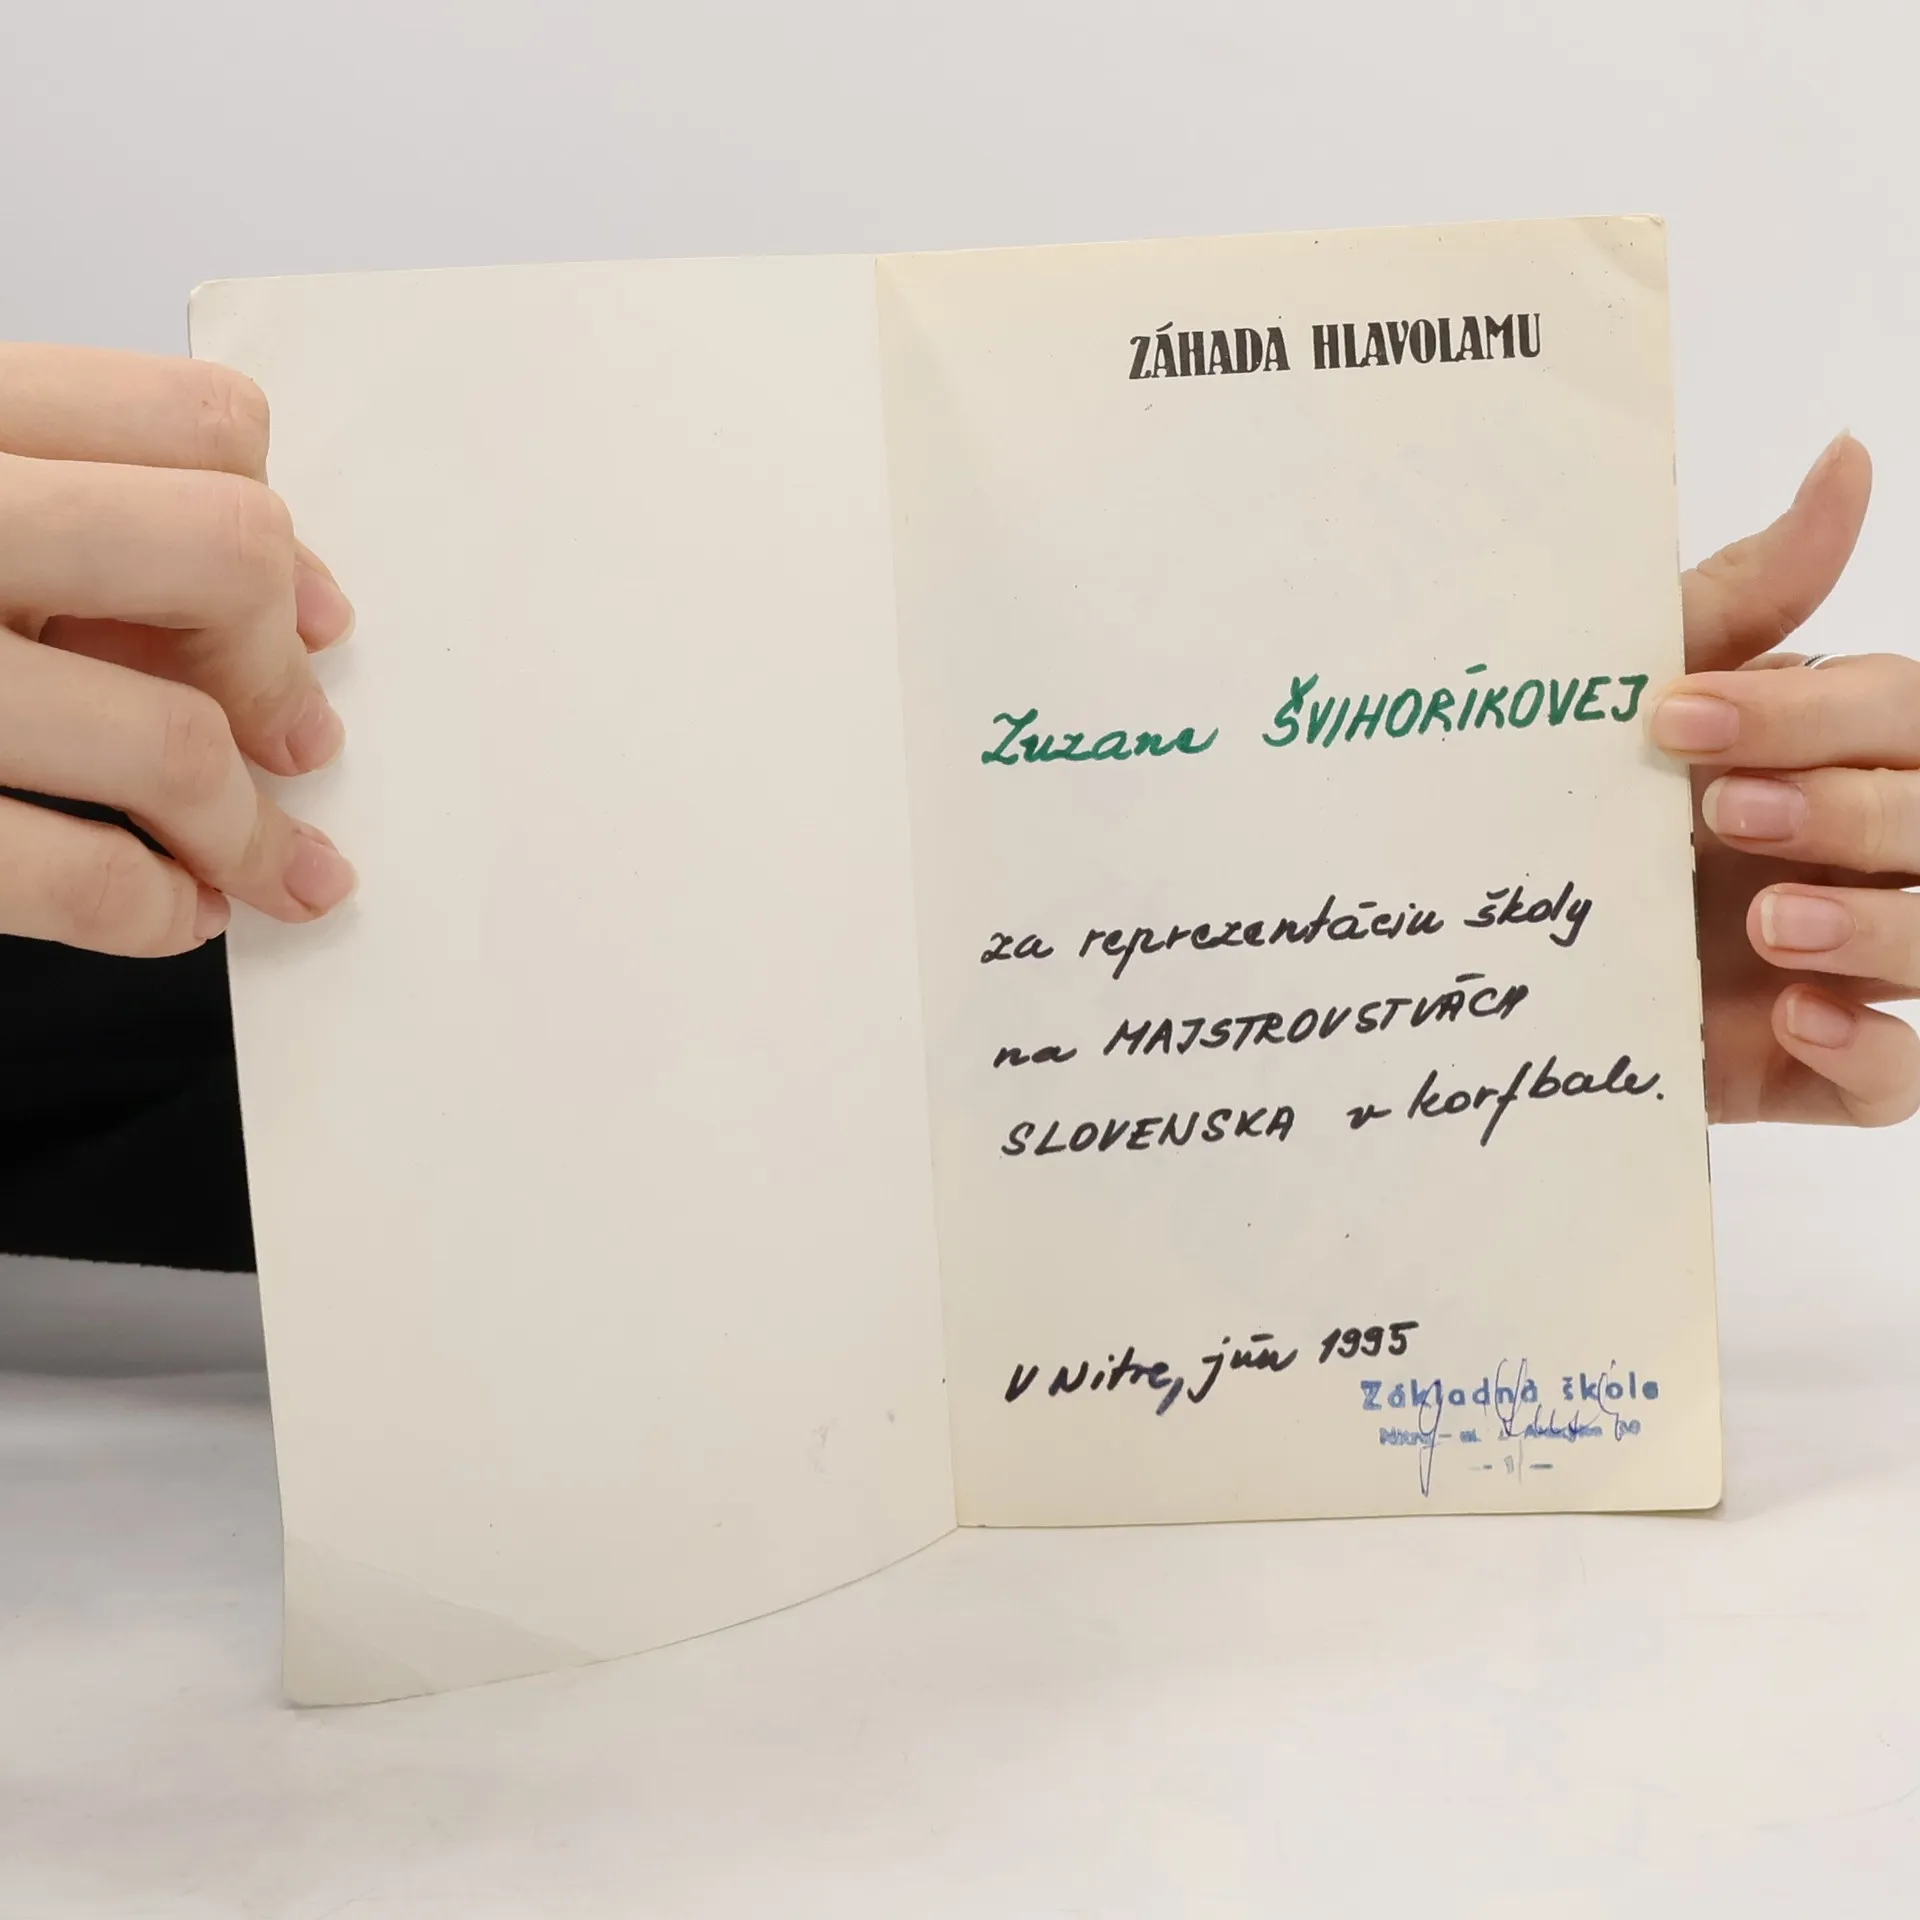 ZÁHADA HLAVOLAMU
Zuzane ŠVIHORÍKOVEJ
za reprezentáciu školy
na MAJSTROVSTVÁCH
SLOVENSKA v korfbale.
V Nitre, jún 1995
Základná škola
Nitra - ul.
- 1 -